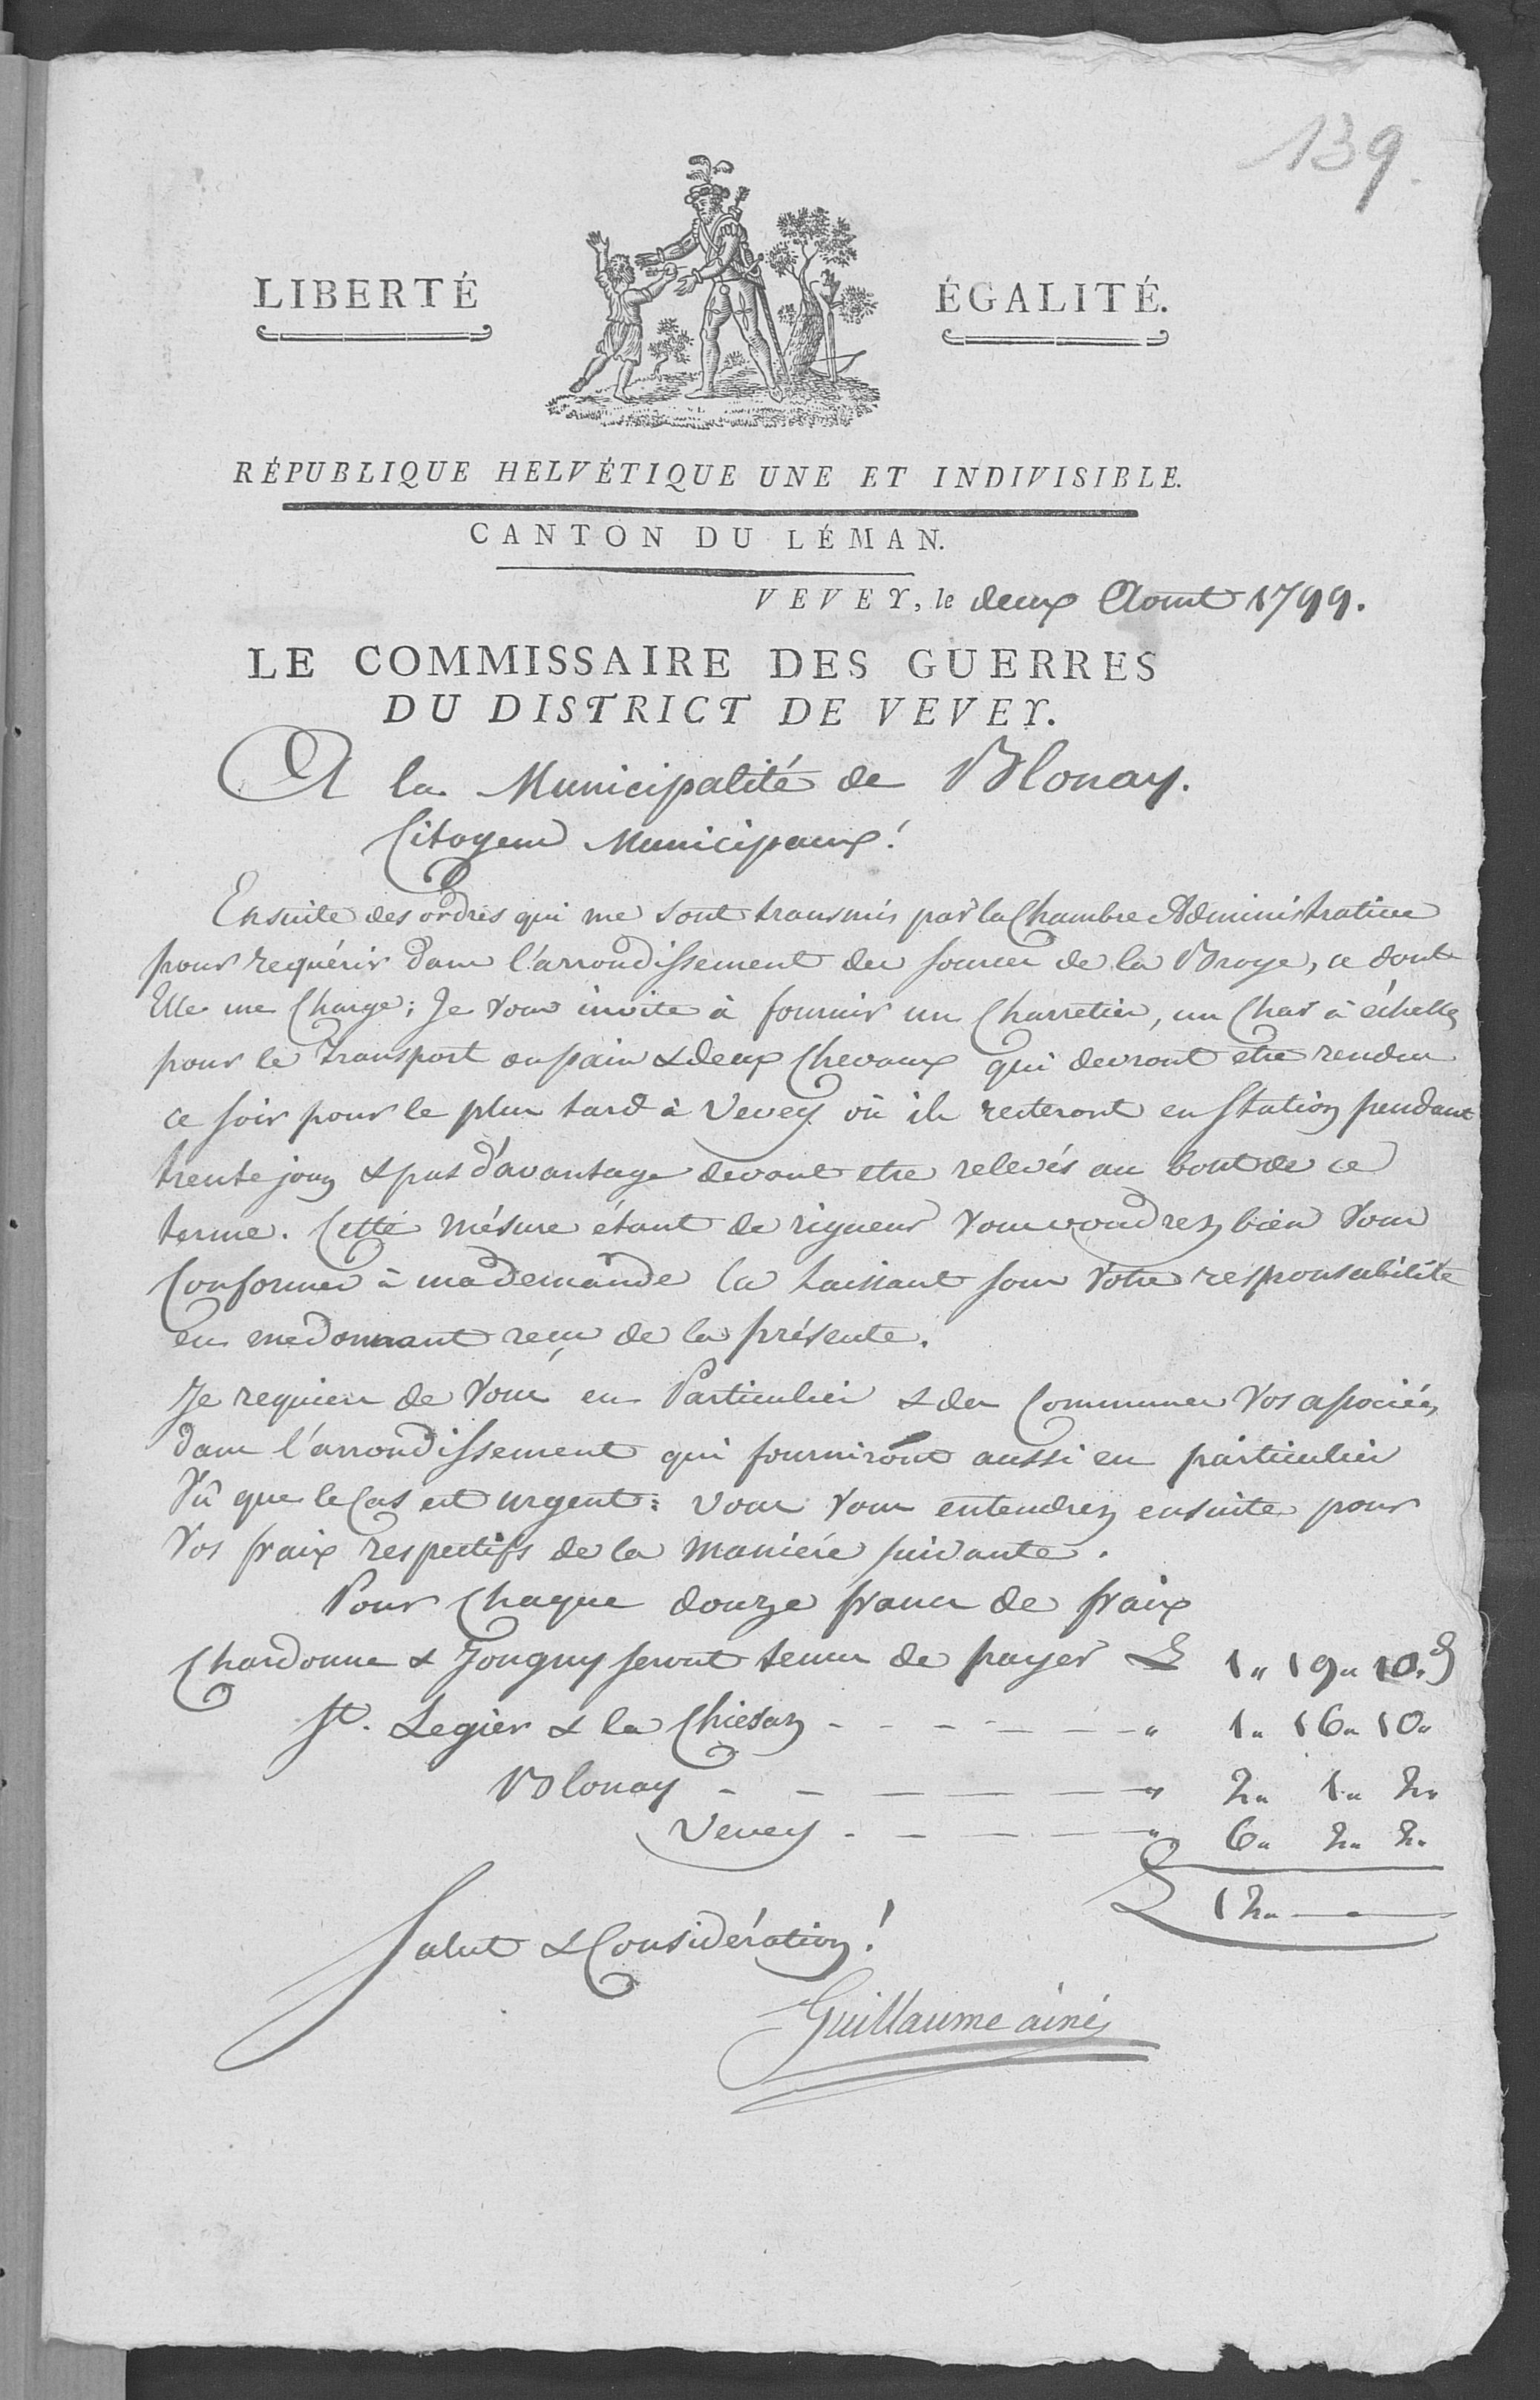 139.
LIBERTÉ ÉGALITÉ.
RÉPUBLIQUE HELVÉTIQUE UNE ET INDIVISIBLE.
CANTON DU LÉMAN.
VEVEY, le deux Aout 1799.
LE COMMISSAIRE DES GUERRES
DU DISTRICT DE VEVEY.
A la Municipalité de Blonay.
Citoyens Municipaux!
Ensuite des ordres qui me sont transmis par la Chambre Administrative
pour requérir dans l'arrondissement des sources de la Broye, ce dont
Elle me Charge; Je vous invite à fournir un Charretier, un Char à échelles
pour le transport du pain & deux Chevaux qui devront etre rendus
ce soir pour le plus tard à Vevey où ils resteront en Station pendant
trente jours & pas d'avantage devant etre relevés au bout de ce
terme. Cette mésure étant de rigueur vous voudrez bien vous
Conformer à ma demande la laissant sous votre responsabilité
en me donnant reçu de la présente.
Je requiers de vous en Particulier & des Communes vos associées
dans l'arrondissement qui fourniront aussi en particulier
Vû que le Cas est urgent: vous vous entendrez ensuite pour
vos fraix respectifs de la maniére suivante.
Pour Chaque douze francs de fraix
Chardonne & Jongny seront tenus de payer L 1" 19" 10.d
St. Legier & la Chiesaz - - - - - - " 1" 16" 10"
Blonay - - - - - - " 2" 1" 2"
Vevey - - - - - " 6" 2" 2"
L 12"
Salut & Considération!
Guillaume ainé